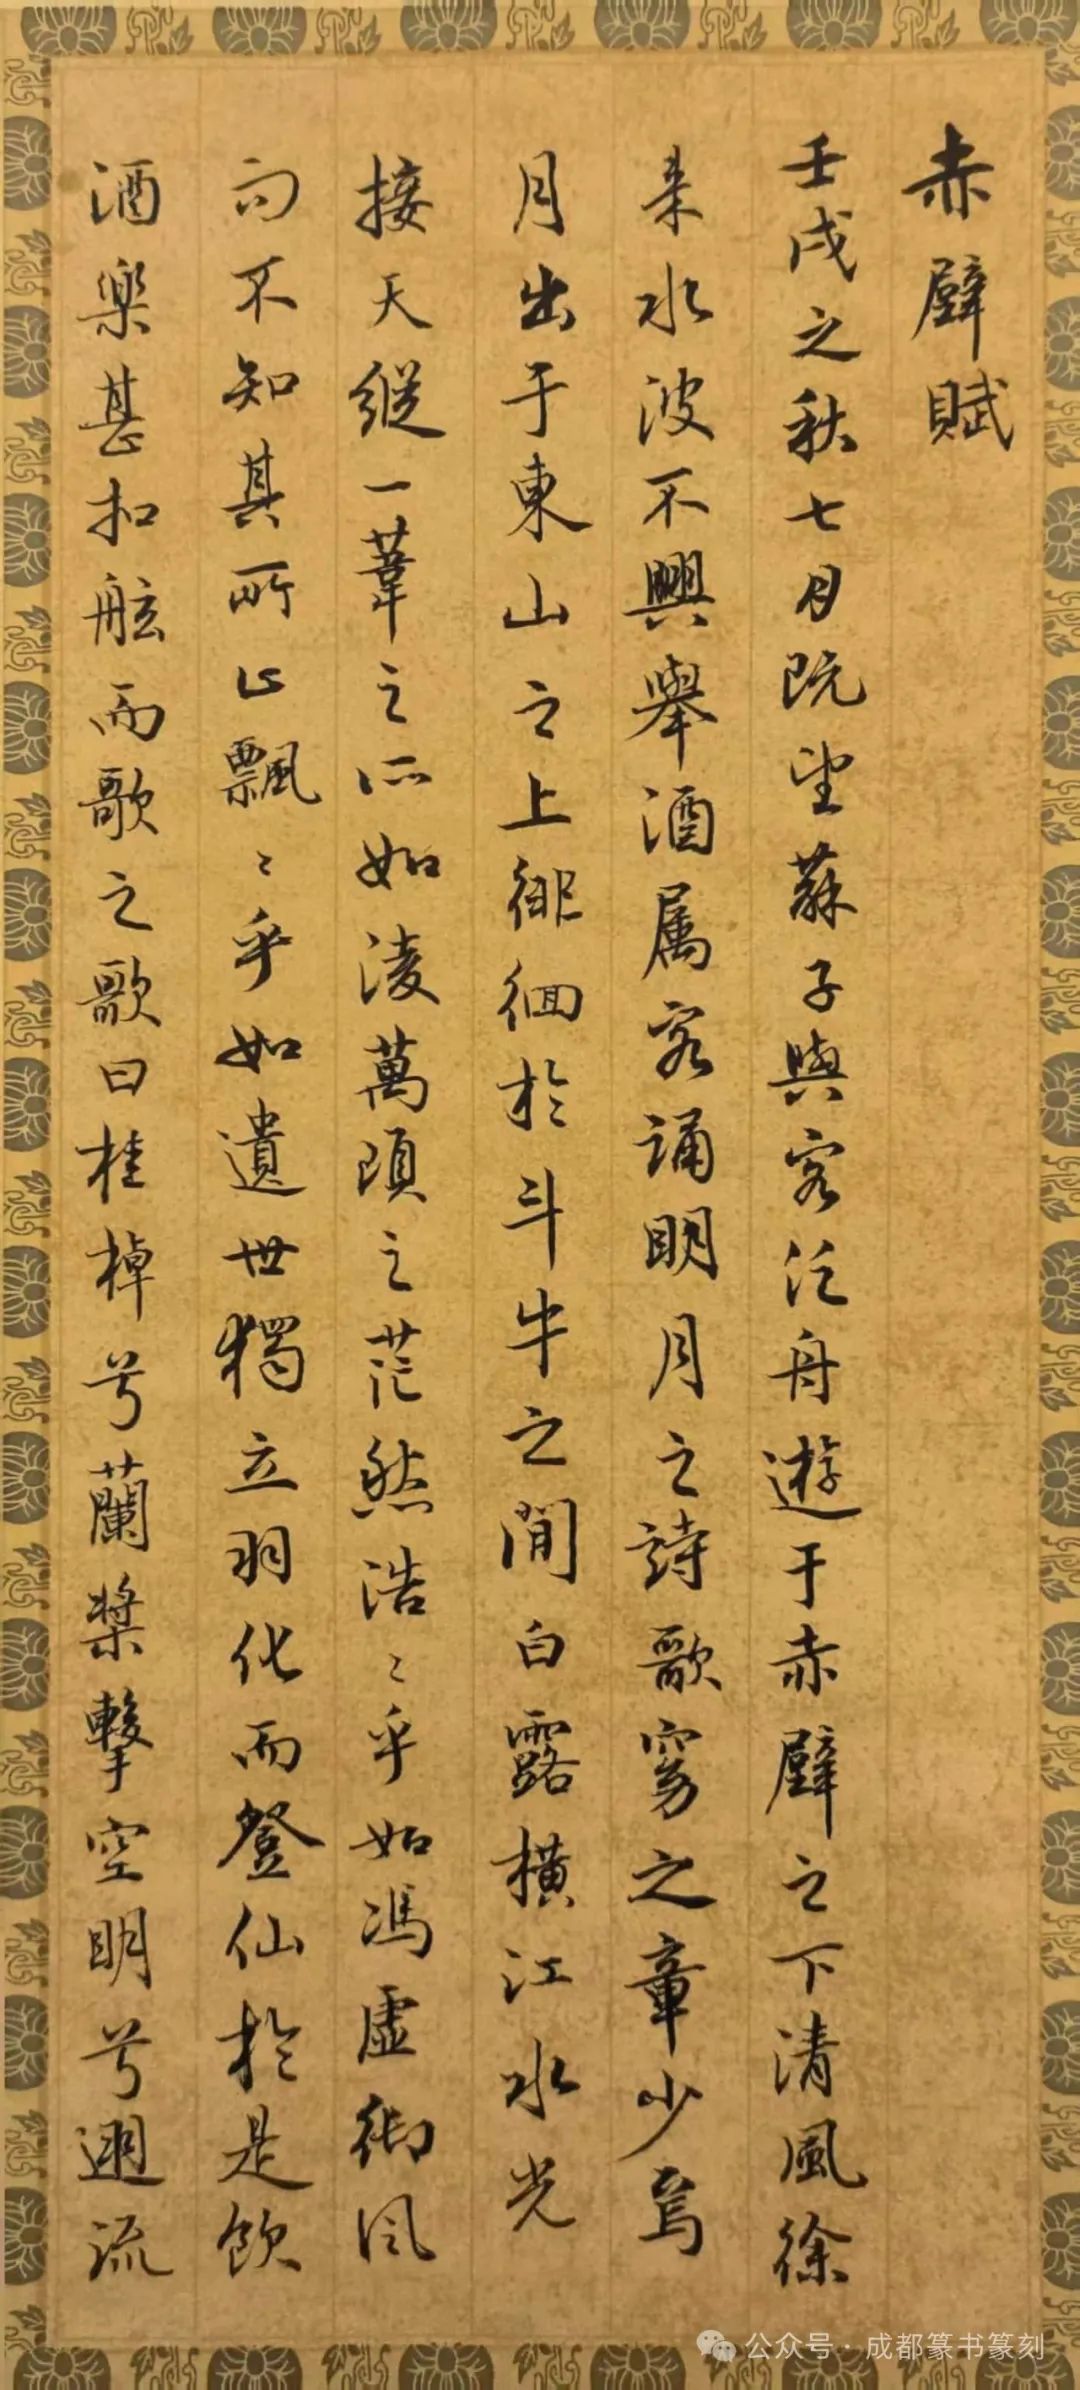 赤壁賦
壬戌之秋七月既望蘇子與客泛舟遊于赤壁之下清風徐
来水波不興舉酒属客誦明月之詩歌窈之章少焉
月出于東山之上徘徊於斗牛之間白露横江水光
接天縱一葦之所如淩萬頃之茫然浩〻乎如馮虚御风
而不知其所止飄〻乎如遺世獨立羽化而登仙於是飲
酒樂甚扣舷而歌之歌曰桂棹兮蘭槳擊空明兮遡流
公众号·成都篆书篆刻